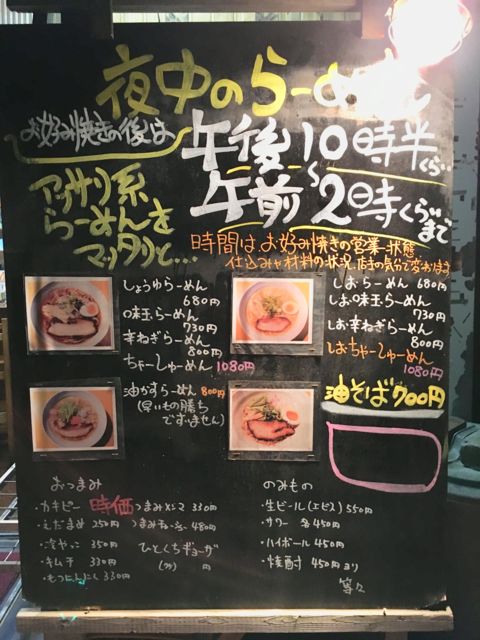 夜中のらーめん
お好み焼きの後は
午後10時半くらい
〜
午前2時くらいまで
アッサリ系
らーめんを
マッタリと...
時間はお好み焼きの営業状態
仕込みや材料の状況、店主の気分で変わります
しょうゆらーめん
680円
味玉らーめん
730円
辛ねぎらーめん
800円
ちゃーしゅーめん 1080円
油かすらーめん 800円
(早いもの勝ち
ですいません)
しおらーめん 680円
しお味玉らーめん
730円
しお辛ねぎらーめん
800円
しおちゃーしゅーめん
1080円
油そば700円
おつまみ
・カキピー 時価
・えだまめ 250円
・冷やっこ 350円
・キムチ 330円
・もつにんにく 330円
つまみメンマ 330円
つまみチャーシュー 480円
ひとくちギョーザ
円
のみもの
・生ビール(エビス) 550円
・サワー 各450円
・ハイボール 450円
・焼酎 450円より
等々